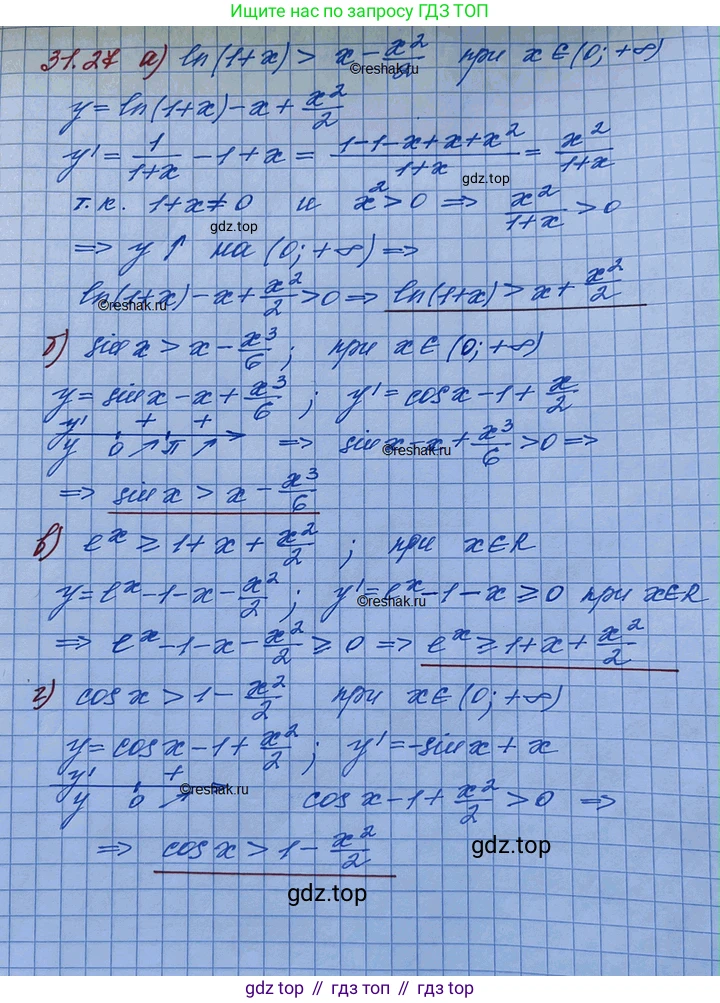 Ищите нас по запросу ГДЗ ТОП
31.27 а) ln(1+x) > x - x²/2 при x∈(0; +∞)
©reshak.ru
y = ln(1+x) - x + x²/2
y' = 1/(1+x) - 1 + x = (1-1-x+x+x²)/(1+x) = x²/(1+x)
gdz.top
т.к. 1+x≠0 и x²>0 ⇒ x²/(1+x) > 0
gdz.top
⇒ y↑ на (0; +∞) ⇒
ln(1+x) - x + x²/2 > 0 ⇒ ln(1+x) > x + x²/2
©reshak.ru
б) sin x > x - x³/6 ; при x∈(0; +∞)
y = sin x - x + x³/6 ; y' = cos x - 1 + x/2
y' + +
y 0 ↗ π ↗ ⇒ sin x - x + x³/6 > 0 ⇒
©reshak.ru
⇒ sin x > x - x³/6
в) eˣ ≥ 1 + x + x²/2 ; при x∈R
y = eˣ - 1 - x - x²/2 ; y' = eˣ - 1 - x ≥ 0 при x∈R
©reshak.ru
⇒ eˣ - 1 - x - x²/2 ≥ 0 ⇒ eˣ ≥ 1 + x + x²/2
г) cos x > 1 - x²/2 при x∈(0; +∞)
y = cos x - 1 + x²/2 ; y' = -sin x + x
y' +
y 0 ↗ cos x - 1 + x²/2 > 0 ⇒
©reshak.ru
⇒ cos x > 1 - x²/2
gdz.top
gdz.top
gdz top // гдз топ // gdz top